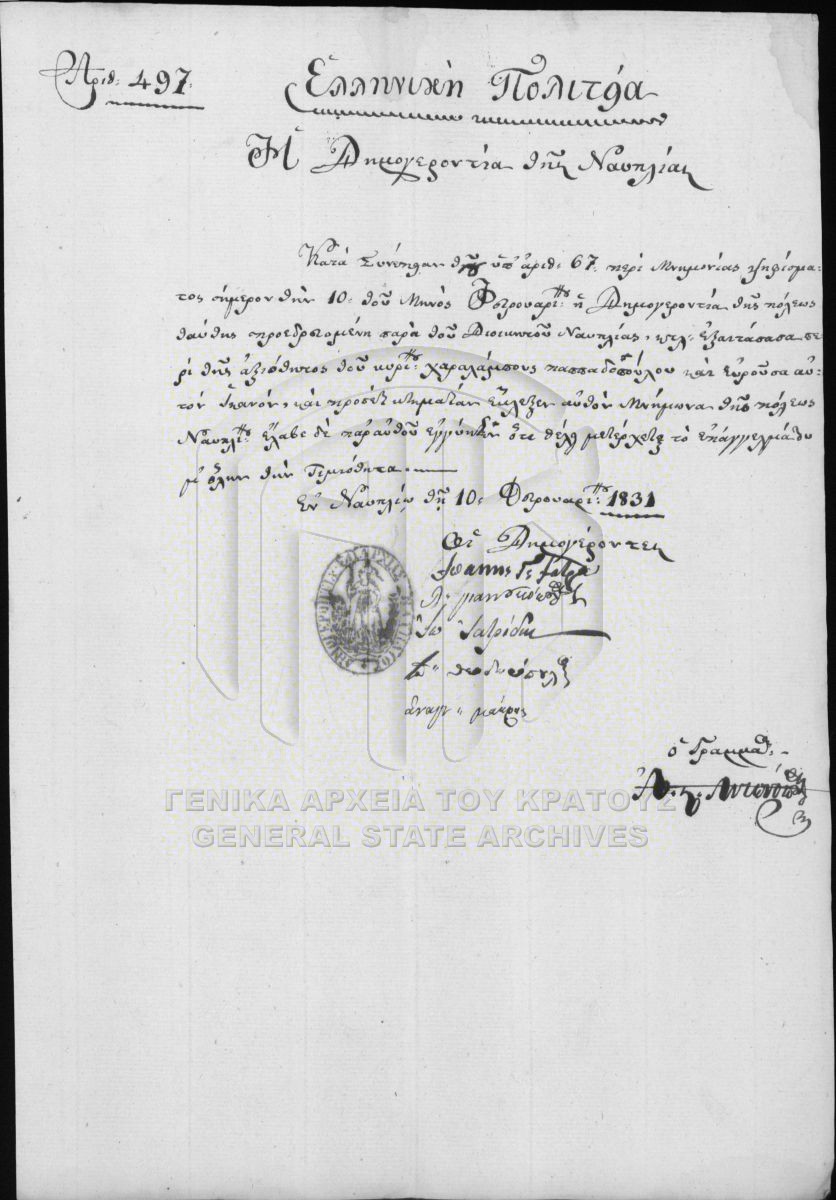 Ἀριθ: 497.
Ἑλληνικὴ Πολιτεία
Ἡ Δημογεροντία τῆς Ναυπλίας
Κατὰ Συνέπειαν τοῦ ὑπ' ἀριθ: 67. περὶ Μνημονίας ψηφίσμα-
τος σήμερον τὴν 10: τοῦ Μηνὸς Φεβρουαρίου ἡ Δημογεροντία τῆς πόλεως
ταύτης προεδρευομένη παρὰ τοῦ Διοικητοῦ Ναυπλίας, κτλ. ἐξαιτάσασα πε-
ρὶ τῆς ἀξιότητος τοῦ κυρίου χαραλάμπους παππαδοπούλου καὶ εὑροῦσα αὐ-
τὸν ἱκανόν, καὶ προσέτι κτηματίαν ἔκλεξεν αὐτὸν Μνήμονα τῆς πόλεως
Ναυπλίου ἔλαβε δὲ παρ' αὐτοῦ ἐγγύησιν ὅτι θέλει μετέρχεται τὸ ἐπάγγελμά του
μ' ὅλην τὴν Τιμιότητα.
Ἐν Ναυπλίῳ τῇ 10: Φεβρουαρίου: 1831
Οἱ Δημογέροντες
Ἰω Ἰατρίδης
ἀναγν: μακρης
ὁ Γραμμα:
ΓΕΝΙΚΑ ΑΡΧΕΙΑ ΤΟΥ ΚΡΑΤΟΥΣ
GENERAL STATE ARCHIVES